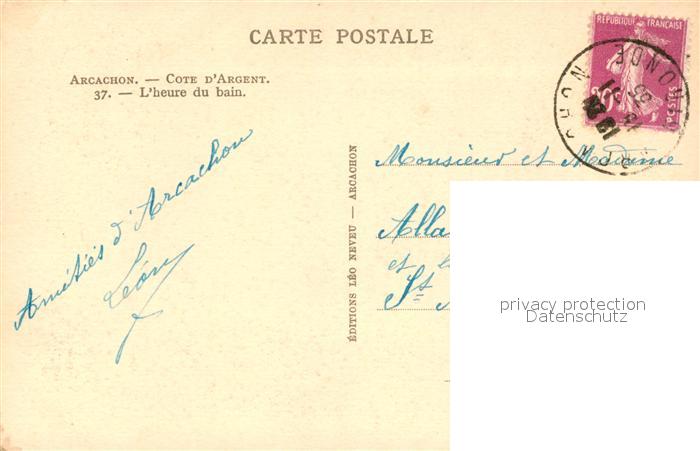 CARTE POSTALE
ARCACHON. — COTE D'ARGENT.
37. — L'heure du bain.
RÉPUBLIQUE FRANÇAISE
20c
POSTES
Amitiés d'Arcachon
Léon
ÉDITIONS LÉO NEVEU — ARCACHON
Monsieur et Madame
Alla
et
St
privacy protection
Datenschutz